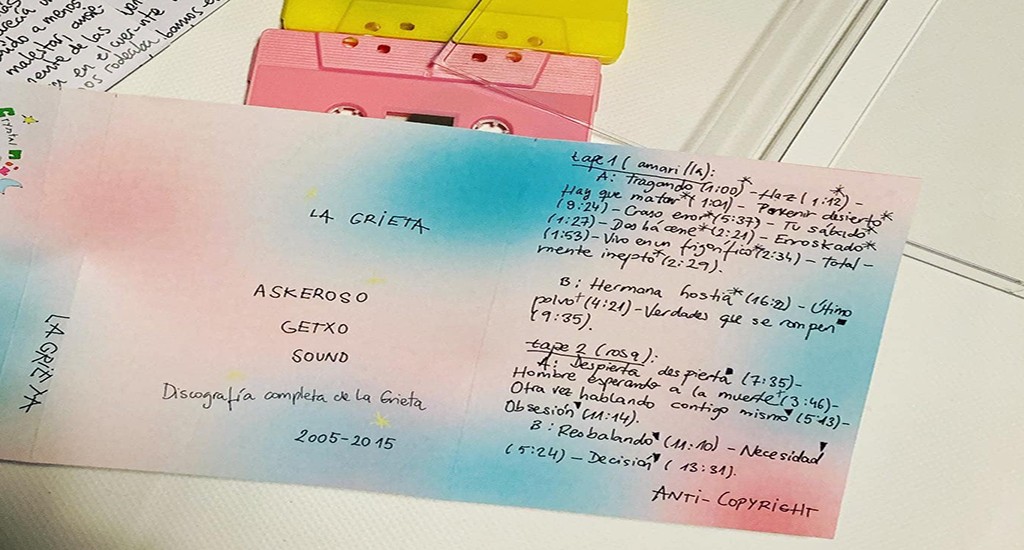 LA GRIETA
ASKEROSO
GETXO
SOUND
Discografía completa de la Grieta
2005-2015
LA GRIETA
tape 1 (amarilla):
A: Tragando (1:00)* - Haz (1:12)* -
Hay que matar* (1:01) - Porvenir desierto*
(9:24) - Craso error* (5:37) - Tu sábado*
(1:27) - Dos há cene* (2:21) - Erroskado*
(1:53) - Vivo en un frigorífico* (2:34) - Total-
mente inepto* (2:29).
B: Hermana hostia* (16:22) - Último
polvo† (4:21) - Verdades que se rompen■
(9:35).
tape 2 (rosa):
A: Despierta, despierta■ (7:35) -
Hombre esperando a la muerte† (3:46) -
Otra vez hablando contigo mismo▼ (5:13) -
Obsesión▼ (11:14).
B: Resbalando▼ (11:10) - Necesidad▼
(5:24) - Decisión▼ (13:31).
ANTI-COPYRIGHT
Crystal